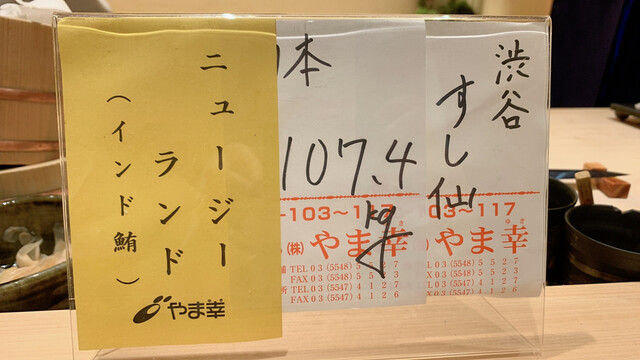 ニュージー
ランド
（インド鮪）
やま幸
本
107.4
kg
-103～11
(株)やま幸
TEL 03 (5548) 5527
FAX 03 (5548) 5528
所 TEL 03 (5547) 4127
FAX 03 (5547) 4126
渋谷
すし仙
03～117
やま幸
03 (5548) 5527
03 (5548) 5528
03 (5547) 4127
03 (5547) 4126